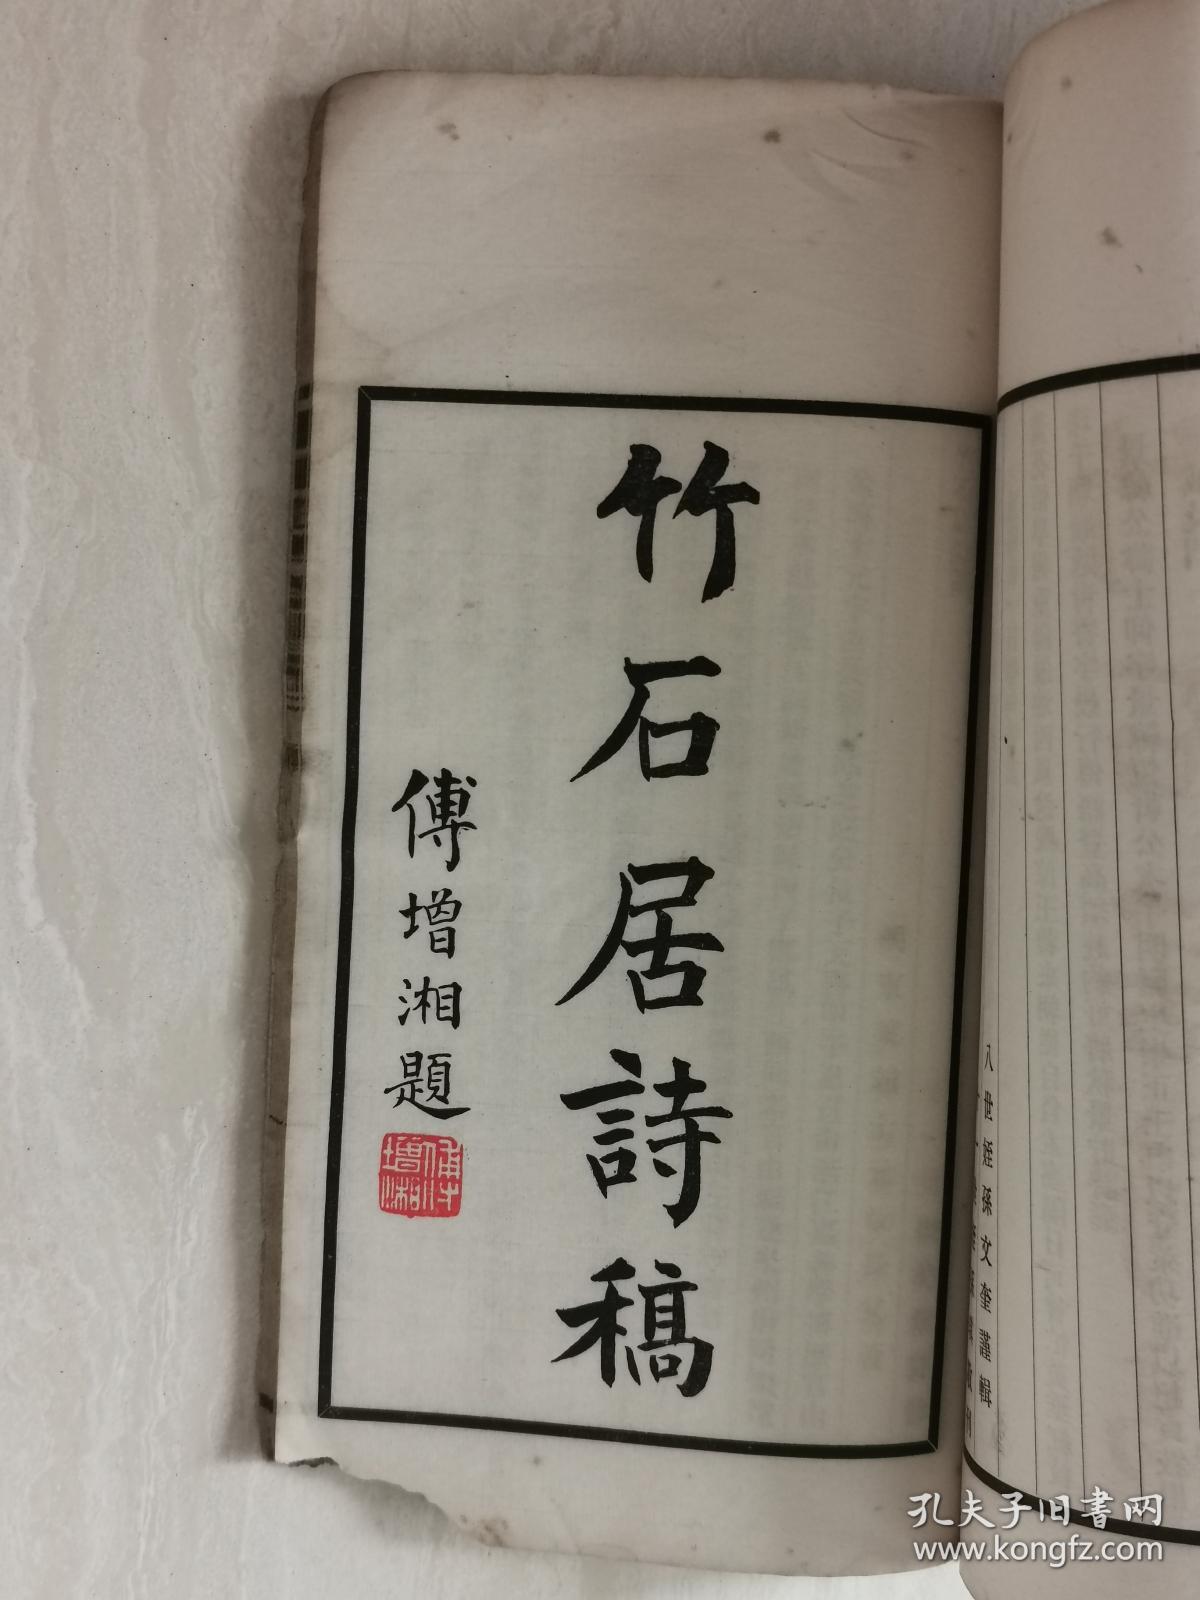 竹石居詩稿
傅增湘題
傅增湘
八世姪孫文奎謹輯
孔夫子旧書网
www.kongfz.com